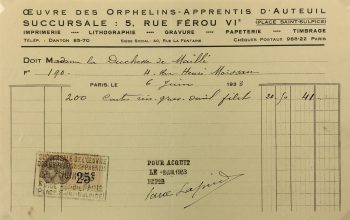 ŒUVRE DES ORPHELINS-APPRENTIS D'AUTEUIL
SUCCURSALE : 5, RUE FÉROU VIᵉ (PLACE SAINT-SULPICE)
IMPRIMERIE — LITHOGRAPHIE — GRAVURE — PAPETERIE — TIMBRAGE
TÉLÉP. : DANTON 85-70 SIÈGE SOCIAL : 40, RUE LA FONTAINE CHÈQUES POSTAUX 968-22 PARIS
DOIT Madame la Duchesse de Maillé
Fº 190. 4. rue Henri Moissan
PARIS, LE 6 Juin 1933
200 Cartes deuil filet 20.50 41
25ᶜ
POUR ACQUIT
LE 1933